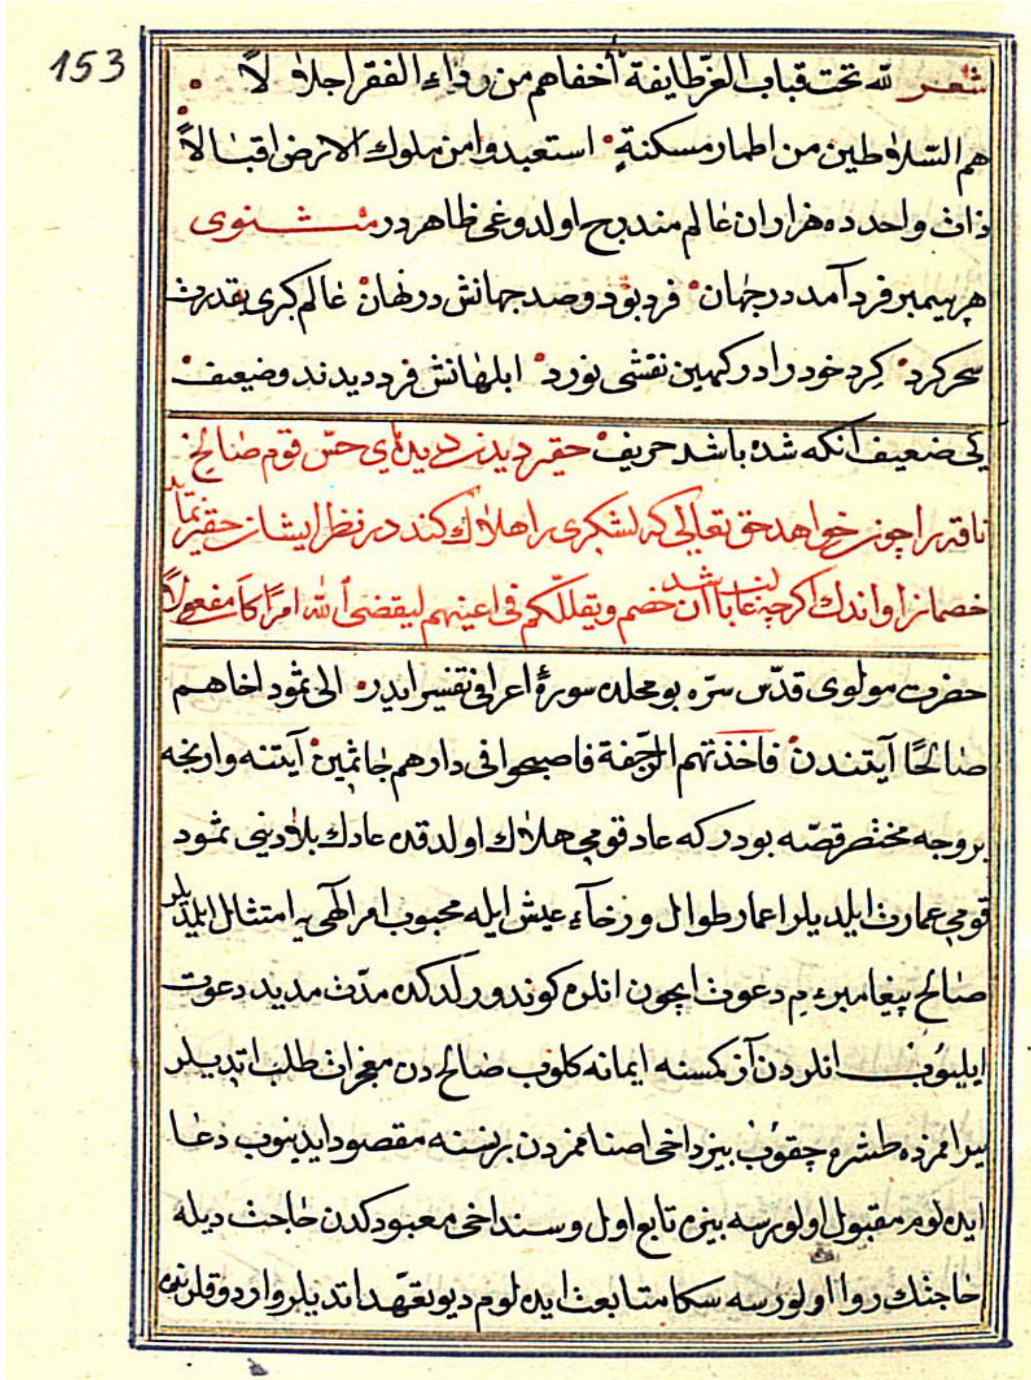 153
شعر لله تحت قباب العزّ طايفة أخفاهم من رداء الفقر اجلالاً
هم السّلاطين من اطمار مسكنةٍ استعبدوا من ملوك الارض اقبالاً
ذات واحدده هزاران عالم مندرج اولدوغى ظاهردر مثنوى
هر پيمبر فرد آمد در جهان فرد بود و صد جهانش در نهان عالم كبرى بقدرت
سحر كرد كرد خود را در كهين نقشى نورد ابلهانش فرد ديدند و ضعيف
كى ضعيف آنكه شده باشد حريف حقير ديدن ديدهاى حسّ قوم صالح
ناقه را چون خواهد حق تعالى كه لشكرى را هلاك كند در نظر ايشان حقير نمايد
خصمانرا و اندك اكرچه غالب باشد آن خصم و يقلّلكم فى اعينهم ليقضى الله امرًا كان مفعولاً
حضرت مولوى قدّس سرّه بو محلده سورهٔ اعرافى تفسير ايدر الى ثمود اخاهم
صالحًا آيتندن فاخذتهم الرّجفة فاصبحوا فى دارهم جاثمين آيتنه وارنجه
بروجه مختصر قصّه بودر كه عاد قومى هلاك اولدقده عادك بلادينى ثمود
قومى عمارت ايلديلر اعمار طوال و رخآء عيش ايله محبوب امر الهى يه امتثال ايلديلر
صالح پيغامبرى دعوت ايچون انلره كوندورلدكده مدّت مديد دعوت
ايليوب انلردن آز كمسنه ايمانه كلوب صالح دن معجزات طلب اتديلر
بيرامزده طشره چقوب بيز داخى اصنامزدن بر نسنه مقصود ايدينوب دعا
ايده لوم مقبول اولورسه بيزه تابع اول و سن داخى معبودكدن حاجت ديله
حاجتك روا اولورسه سكا متابعت ايده لوم ديو تعهّد اتديلر واردوقلرنده